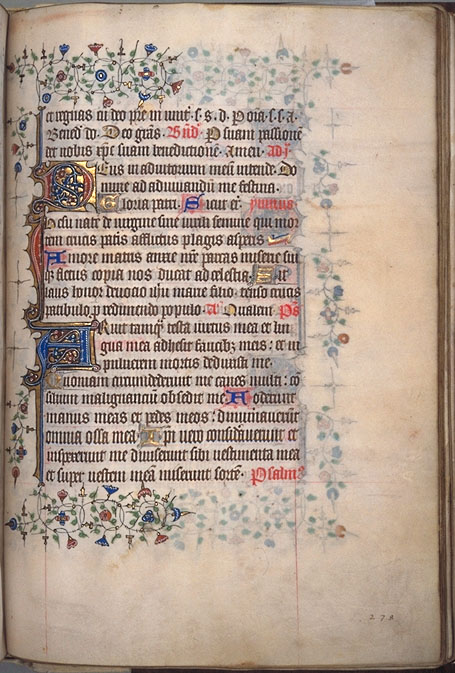 et regnas in deo pr̄e in unit̄. s. s. d. P oīa. s. s. a.
Bened̄ dō. Deo grās. Bn̄d. P suam passionē
det nobis xp̄c suam benedictionē. Amen. ad j̄.
Deus in adiutorium meū intende. Do
mine ad adiuvandū me festina.
Gloria patri. Sicut er̄. ymnus.
Hesu nate de virgine sine viri semine qui mor
tem crucis patris afflictus plagis asperis
Amore matris anxie nr̄m parcas miserie su
q3 actus copia nos ducat ad celestia. Sit
laus honor devocio ihū marie filio. tenso crucis
patibulo p̄ redimendo populo. a. Qualem. Ps
ARuit tamq̄ testa virtus mea et lin
gua mea adhesit faucibz meis: et in
pulverem mortis deduxisti me.
Quoniam circumdederunt me canes multi: co
silium malignanciū obsedit me. Foderunt
manus meas et pedes meos: dinumeraverūt
omnia ossa mea. Ipi vero consid̄averunt et
inspexerunt me diviserunt sibi vestimenta mea
et super vestem meā miserunt sortē. Psalm
278